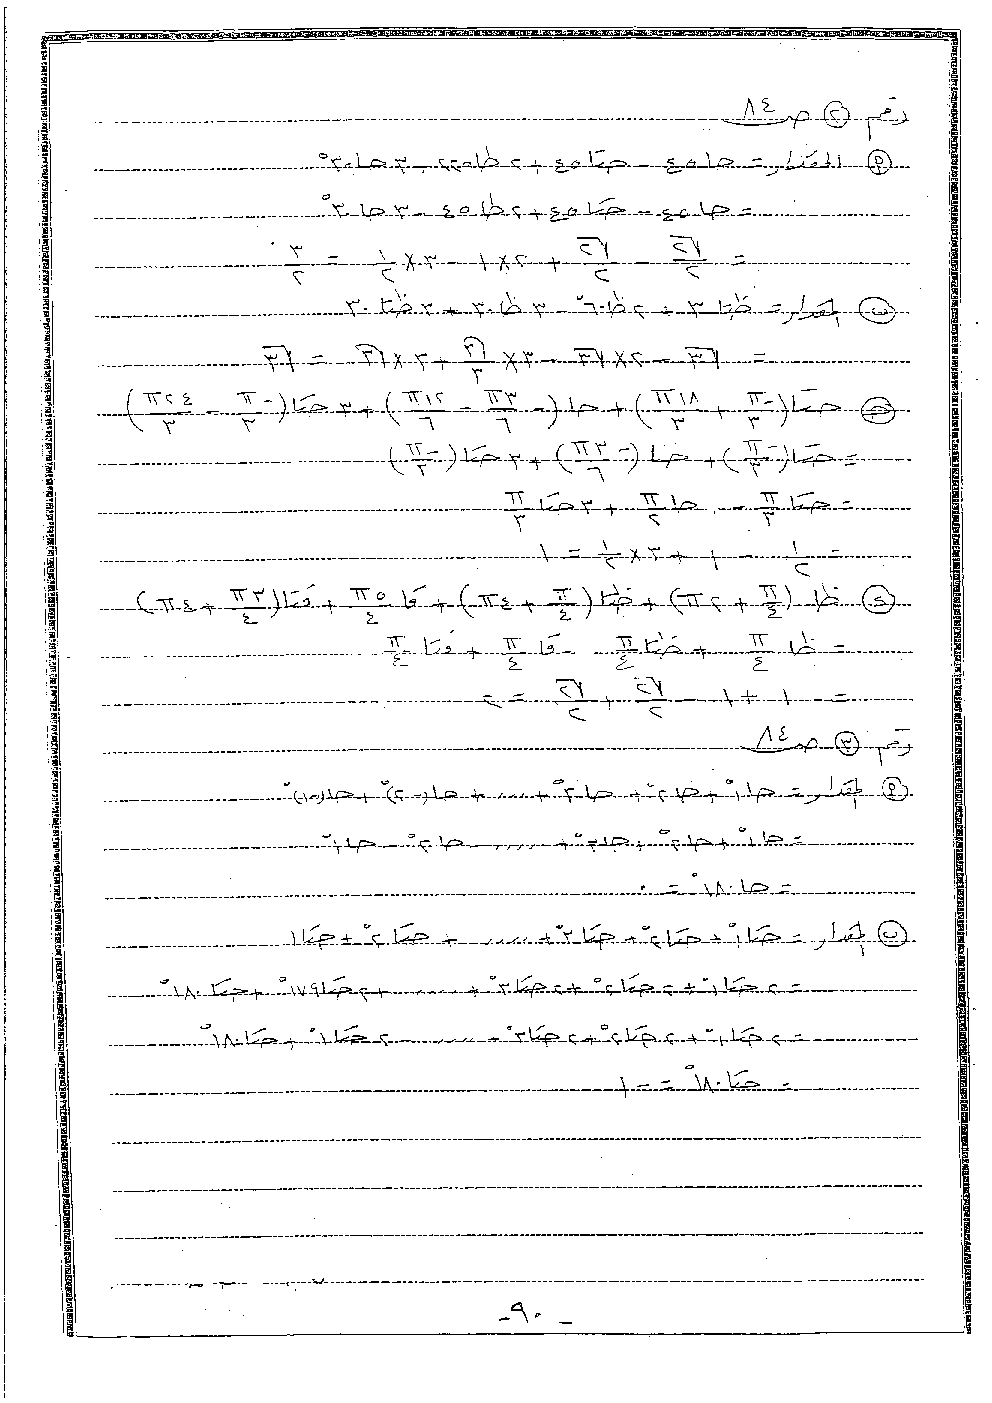 رقم (٢) ص ٨٤
(أ) المقدار = حا٤٥ - حتا٤٥ + ٢ظا٢٢٥ - ٣حا٣٠°
= حا٤٥ - حتا٤٥ + ٢ظا٤٥ - ٣حا٣٠°
= √٢/٢ - √٢/٢ + ٢×١ - ٣×١/٢ =
(ب) المقدار = ظتا٣٠ + ٢ظا٦٠° - ٣ظا٣٠ + ٣ظتا٣٠
= √٣ - ٢×√٣ - ٣×√٣/٣ + ٣×√٣ = √٣
(ج) حتا(-π/٣ + ١٨π/٣) + حا(-٣π/٦ - ١٢π/٦) + ٣حتا(-π/٣ - ٢٤π/٣)
= حتا(-π/٣) + حا(-٣π/٦) + ٣حتا(-π/٣)
= حتا π/٣ - حا π/٢ + ٣حتا π/٣
= ١/٢ - ١ + ٣×١/٢ = ١
(د) ظا(π/٤ + ٢π) + ظتا(π/٤ + ٤π) + قا ٥π/٤ + قتا(٣π/٤ + ٤π)
= ظا π/٤ + ظتا π/٤ - قا π/٤ + قتا π/٤
= ١ + ١ - √٢/٢ + √٢/٢ = ٢
رقم (٣) ص ٨٤
(أ) المقدار = حا١° + حا٢° + حا٣° + ..... + حا(-٢)° + حا(-١)°
= حا١° + حا٢° + حا٣° + ..... - حا٢° - حا١°
= حا١٨٠° = ٠
(ب) المقدار = حتا١° + حتا٢° + حتا٣° + ..... + حتا٢° + حتا١
= ٢حتا١° + ٢حتا٢° + ٢حتا٣° + ..... + ٢حتا١٧٩° + حتا١٨٠°
= ٢حتا١° + ٢حتا٢° + ٢حتا٣° - ..... - ٢حتا١° + حتا١٨٠°
= حتا١٨٠° = -١
- ٩٠ -